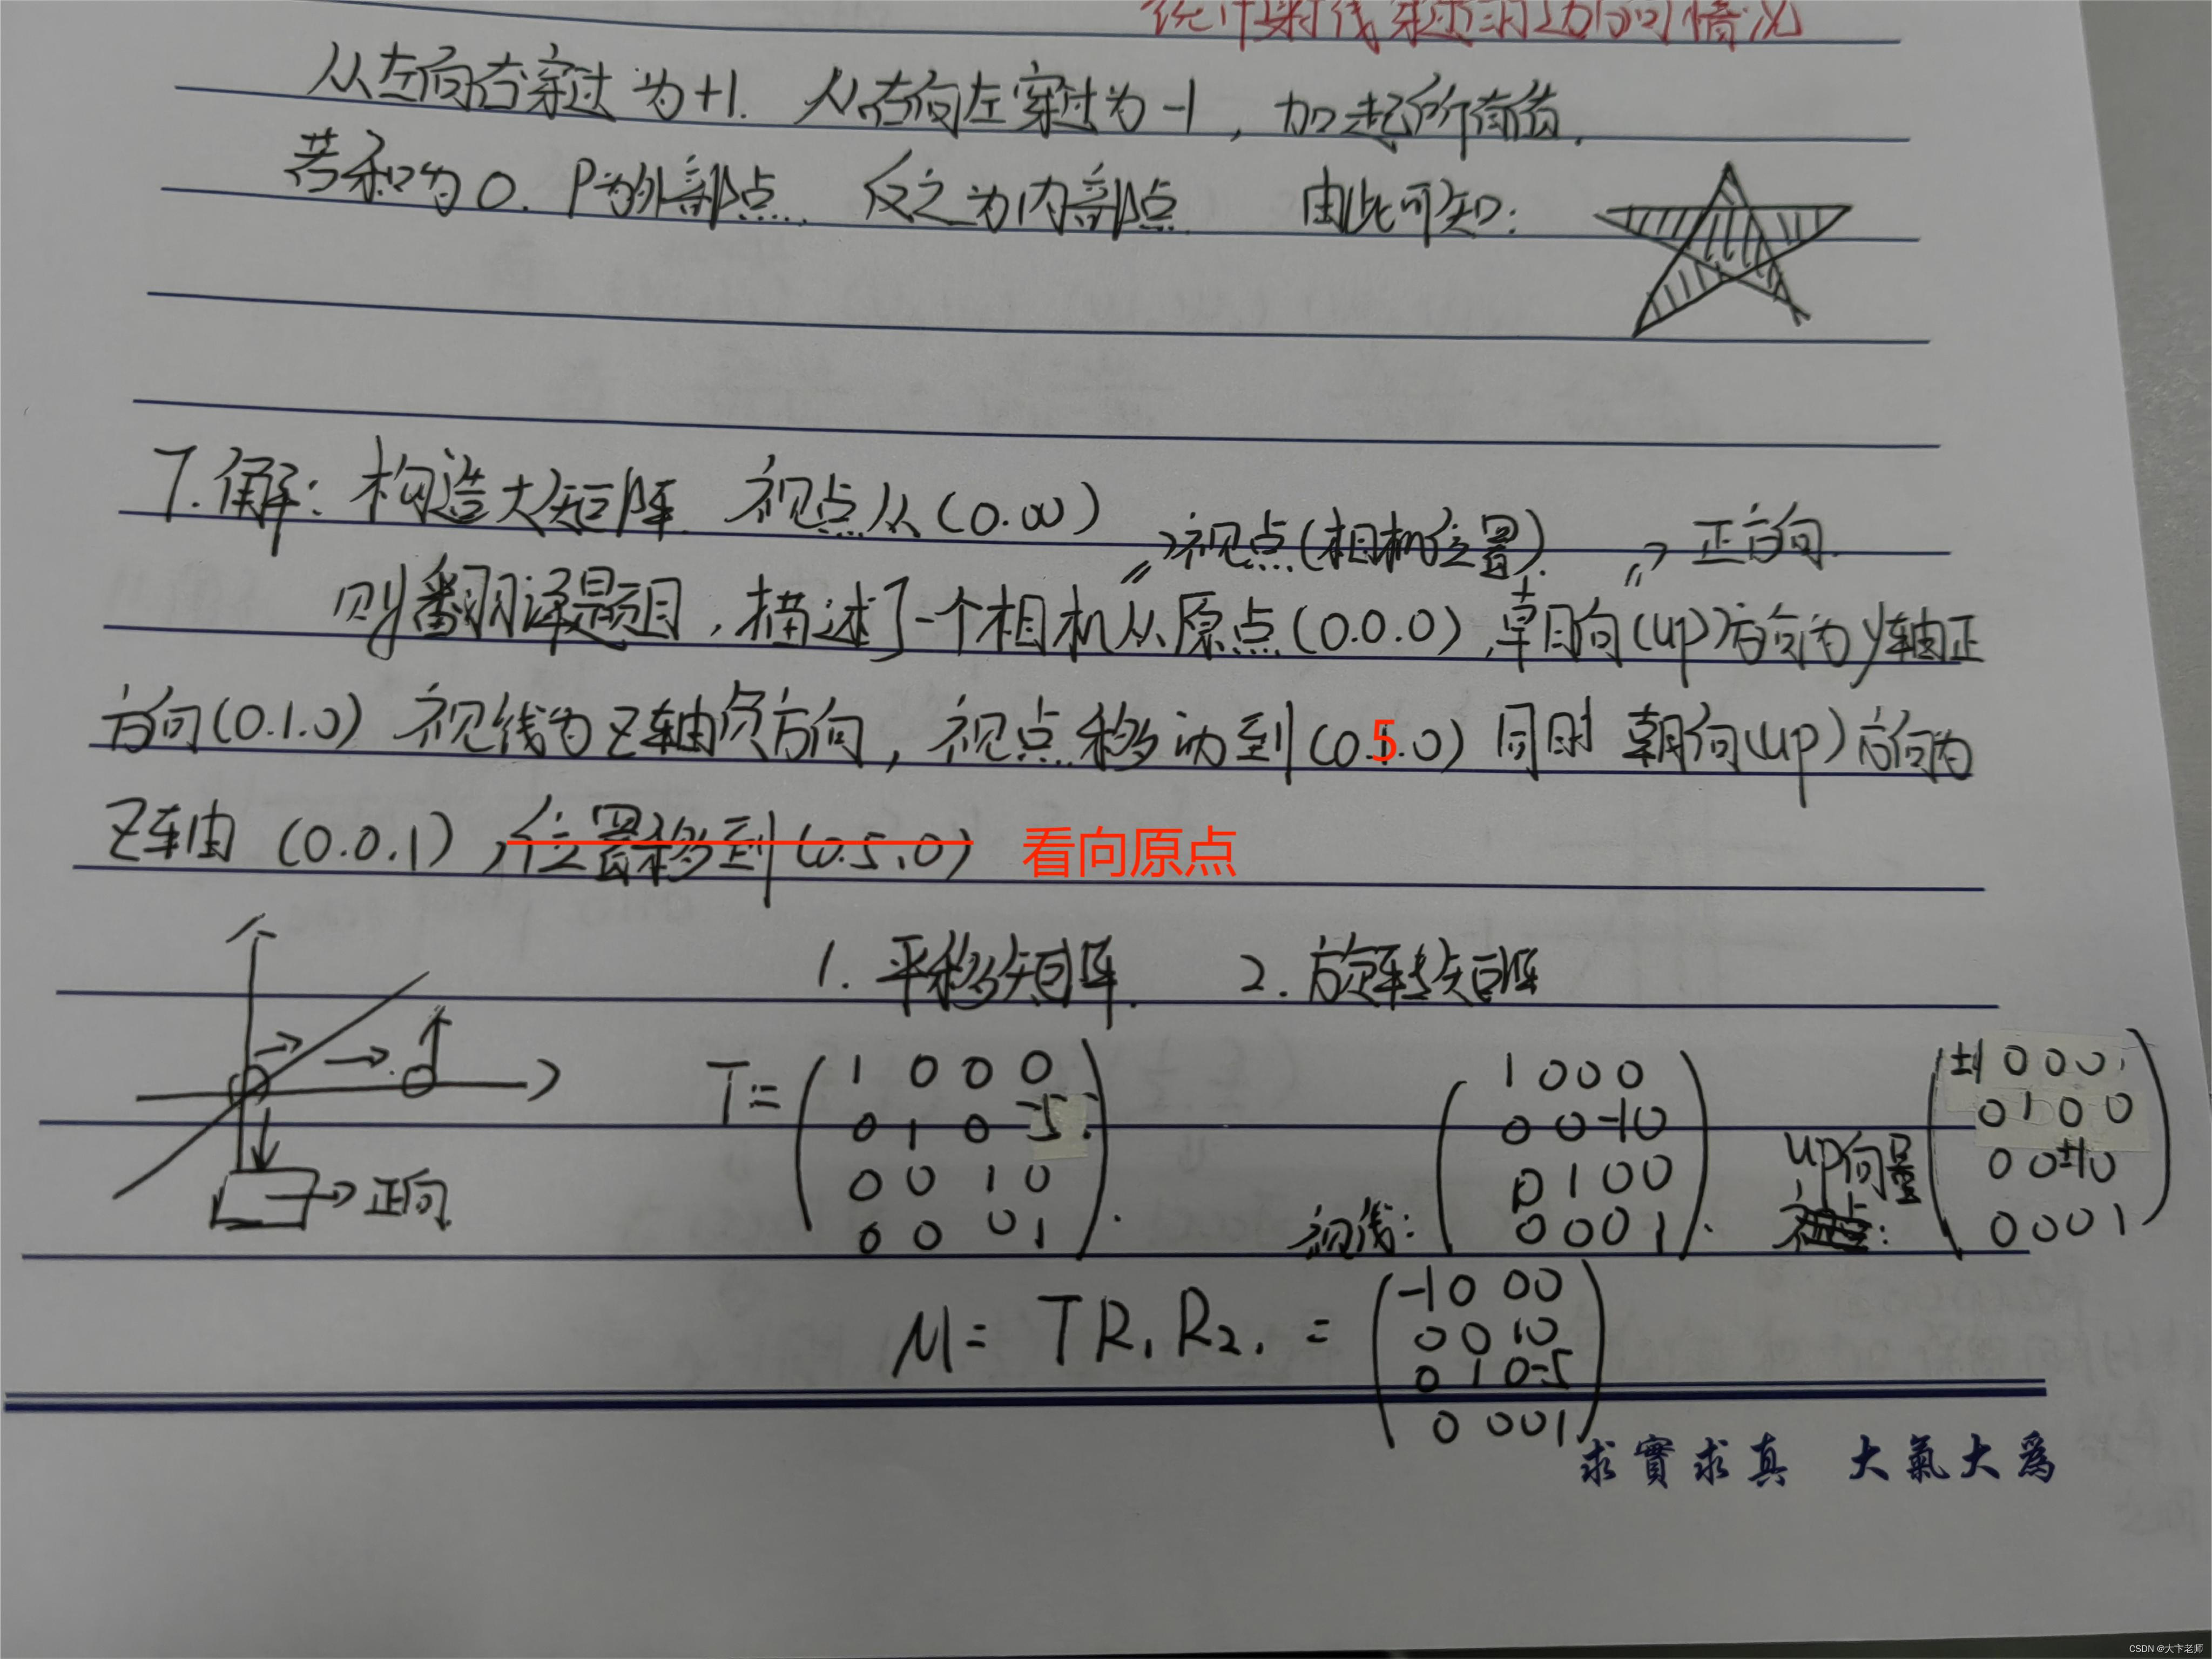 统计射线穿过的边的情况
从左向右穿过为+1. 从右向左穿过为-1, 加起所有值.
若和为0. P为外部点. 反之为内部点. 由此可知:
7.解: 构造大矩阵. 视点从(0.00)
视点(相机位置). 正方向.
则翻译题目, 描述了一个相机从原点(0.0.0), 朝向(up)方向为y轴正
方向(0.1.0) 视线为Z轴负方向, 视点移动到(0.5.0) 同时 朝向(up)方向为
Z轴 (0.0.1), 位置移到(0.5.0) 看向原点
1. 平移矩阵. 2. 旋转矩阵
T=
1 0 0 0
0 1 0 -5
0 0 1 0
0 0 0 1
视线:
1 0 0 0
0 0 -1 0
0 1 0 0
0 0 0 1
up向量:
±1 0 0 0
0 1 0 0
0 0 ±1 0
0 0 0 1
正向
M= TR₁R₂. =
-1 0 0 0
0 0 1 0
0 1 0 -5
0 0 0 1
求實求真 大氣大爲
CSDN @大卞老师